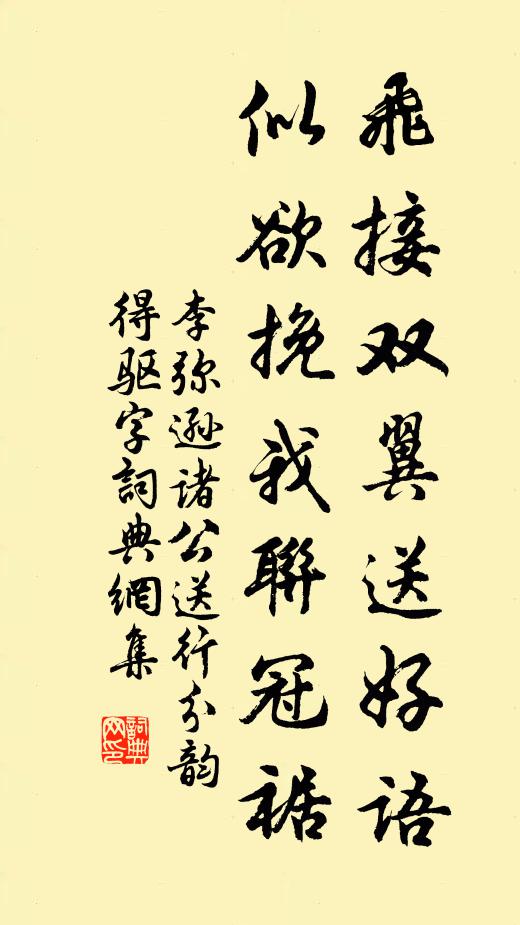 飛接双翼送好语
似欲挽我聯冠裾
李弥遜诸公送行分韵
得驱字詞典網集
詞典網印